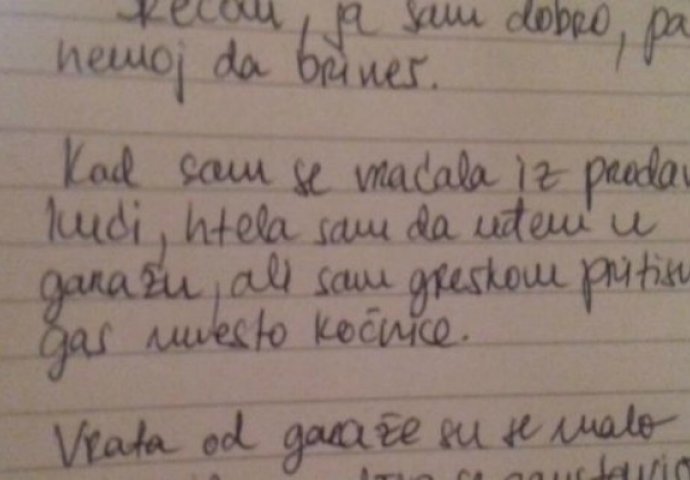 ja sam dobro, pa
nemoj da brineš.
Kad sam se vraćala iz prodav
kući, htela sam da uđem u
garažu, ali sam greškom pritisn
gas umesto kočnice.
Vrata od garaže su se malo
se zaustavio